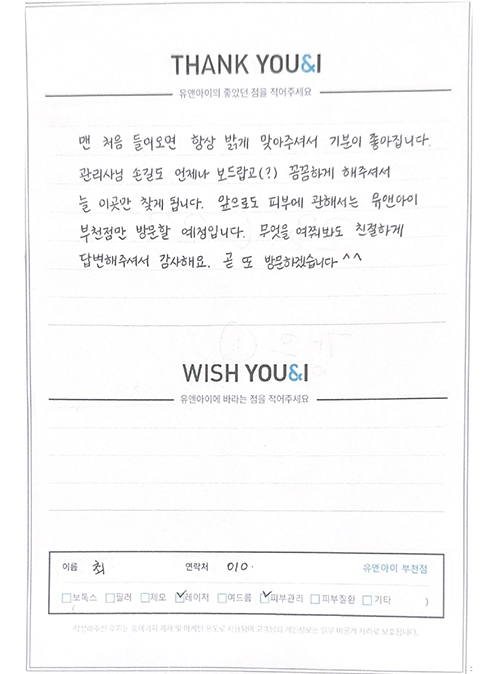 THANK YOU&I
유앤아이의 좋았던 점을 적어주세요
맨 처음 들어오면 항상 밝게 맞아주셔서 기분이 좋아집니다.
관리사님 손길도 언제나 보드랍고(?) 꼼꼼하게 해주셔서
늘 이곳만 찾게 됩니다. 앞으로도 피부에 관해서는 유앤아이
부천점만 방문할 예정입니다. 무엇을 여쭤봐도 친절하게
답변해주셔서 감사해요. 곧 또 방문하겠습니다 ^^
WISH YOU&I
유앤아이에 바라는 점을 적어주세요
이름 최 연락처 010· 유앤아이 부천점
보톡스 필러 제모 레이저 여드름 피부관리 피부질환 기타
( )